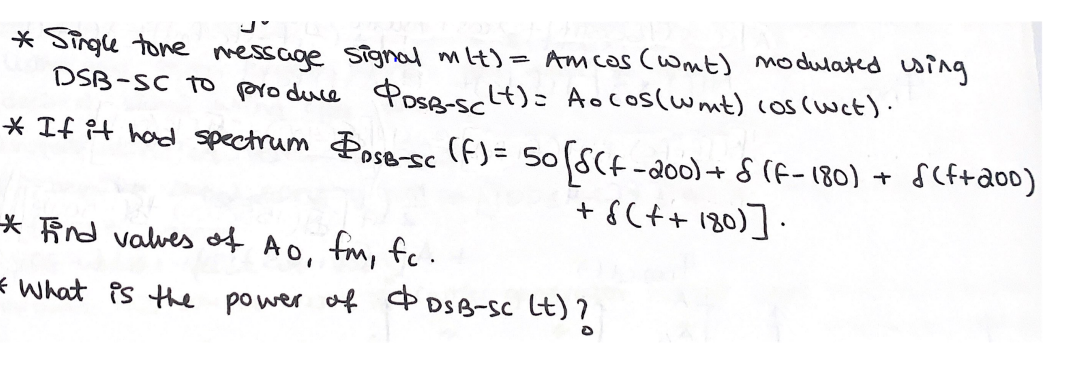 * Single tone message signal m(t) = Am cos (ωmt) modulated using
DSB-SC to produce ΦDSB-SC(t) = Ao cos(ωmt) cos(ωct).
* If it had spectrum ΦDSB-SC (f) = 50 [δ(f-200) + δ (f-180) + δ(f+200)
+ δ(f+180)].
* Find values of Ao, fm, fc.
* What is the power of ΦDSB-SC (t)?